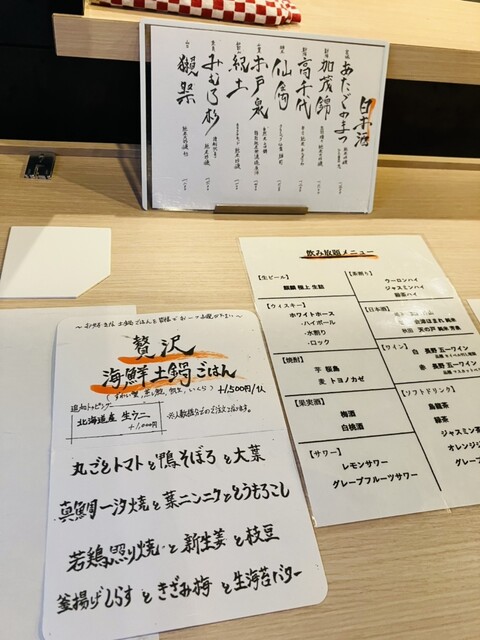 日本酒
宮城 あたごのまつ
新潟 加茂錦
新潟 高千代
埼玉 仙禽
千葉 木戸泉
和歌山 紀土
奈良 みむろ杉
山口 獺祭
飲み放題メニュー
【生ビール】
麒麟 極上 生
【ウィスキー】
ホワイトホース
・ハイボール
・水割り
・ロック
【焼酎】
芋 桜島
麦 トヨノカゼ
【果実酒】
梅酒
白桃酒
【サワー】
レモンサワー
グレープフルーツサワー
【茶割り】
ウーロンハイ
ジャスミンハイ
緑茶ハイ
【日本酒】
会津ほまれ 純米
秋田 天の戸 純米
【ワイン】
白 長野 五一ワイン
赤 長野 五一ワイン
【ソフトドリンク】
烏龍茶
緑茶
ジャスミン茶
オレンジジ
グレープ
贅沢
海鮮土鍋ごはん
+1,500円/1人
追加トッピング
北海道産 生ウニ
+1,000円
丸ごとトマトと鴨そぼろと大葉
真鯛一汐焼と葉ニンニクととうもろこし
若鶏照り焼と新生姜と枝豆
釜揚げしらすときざみ梅と生海苔バター